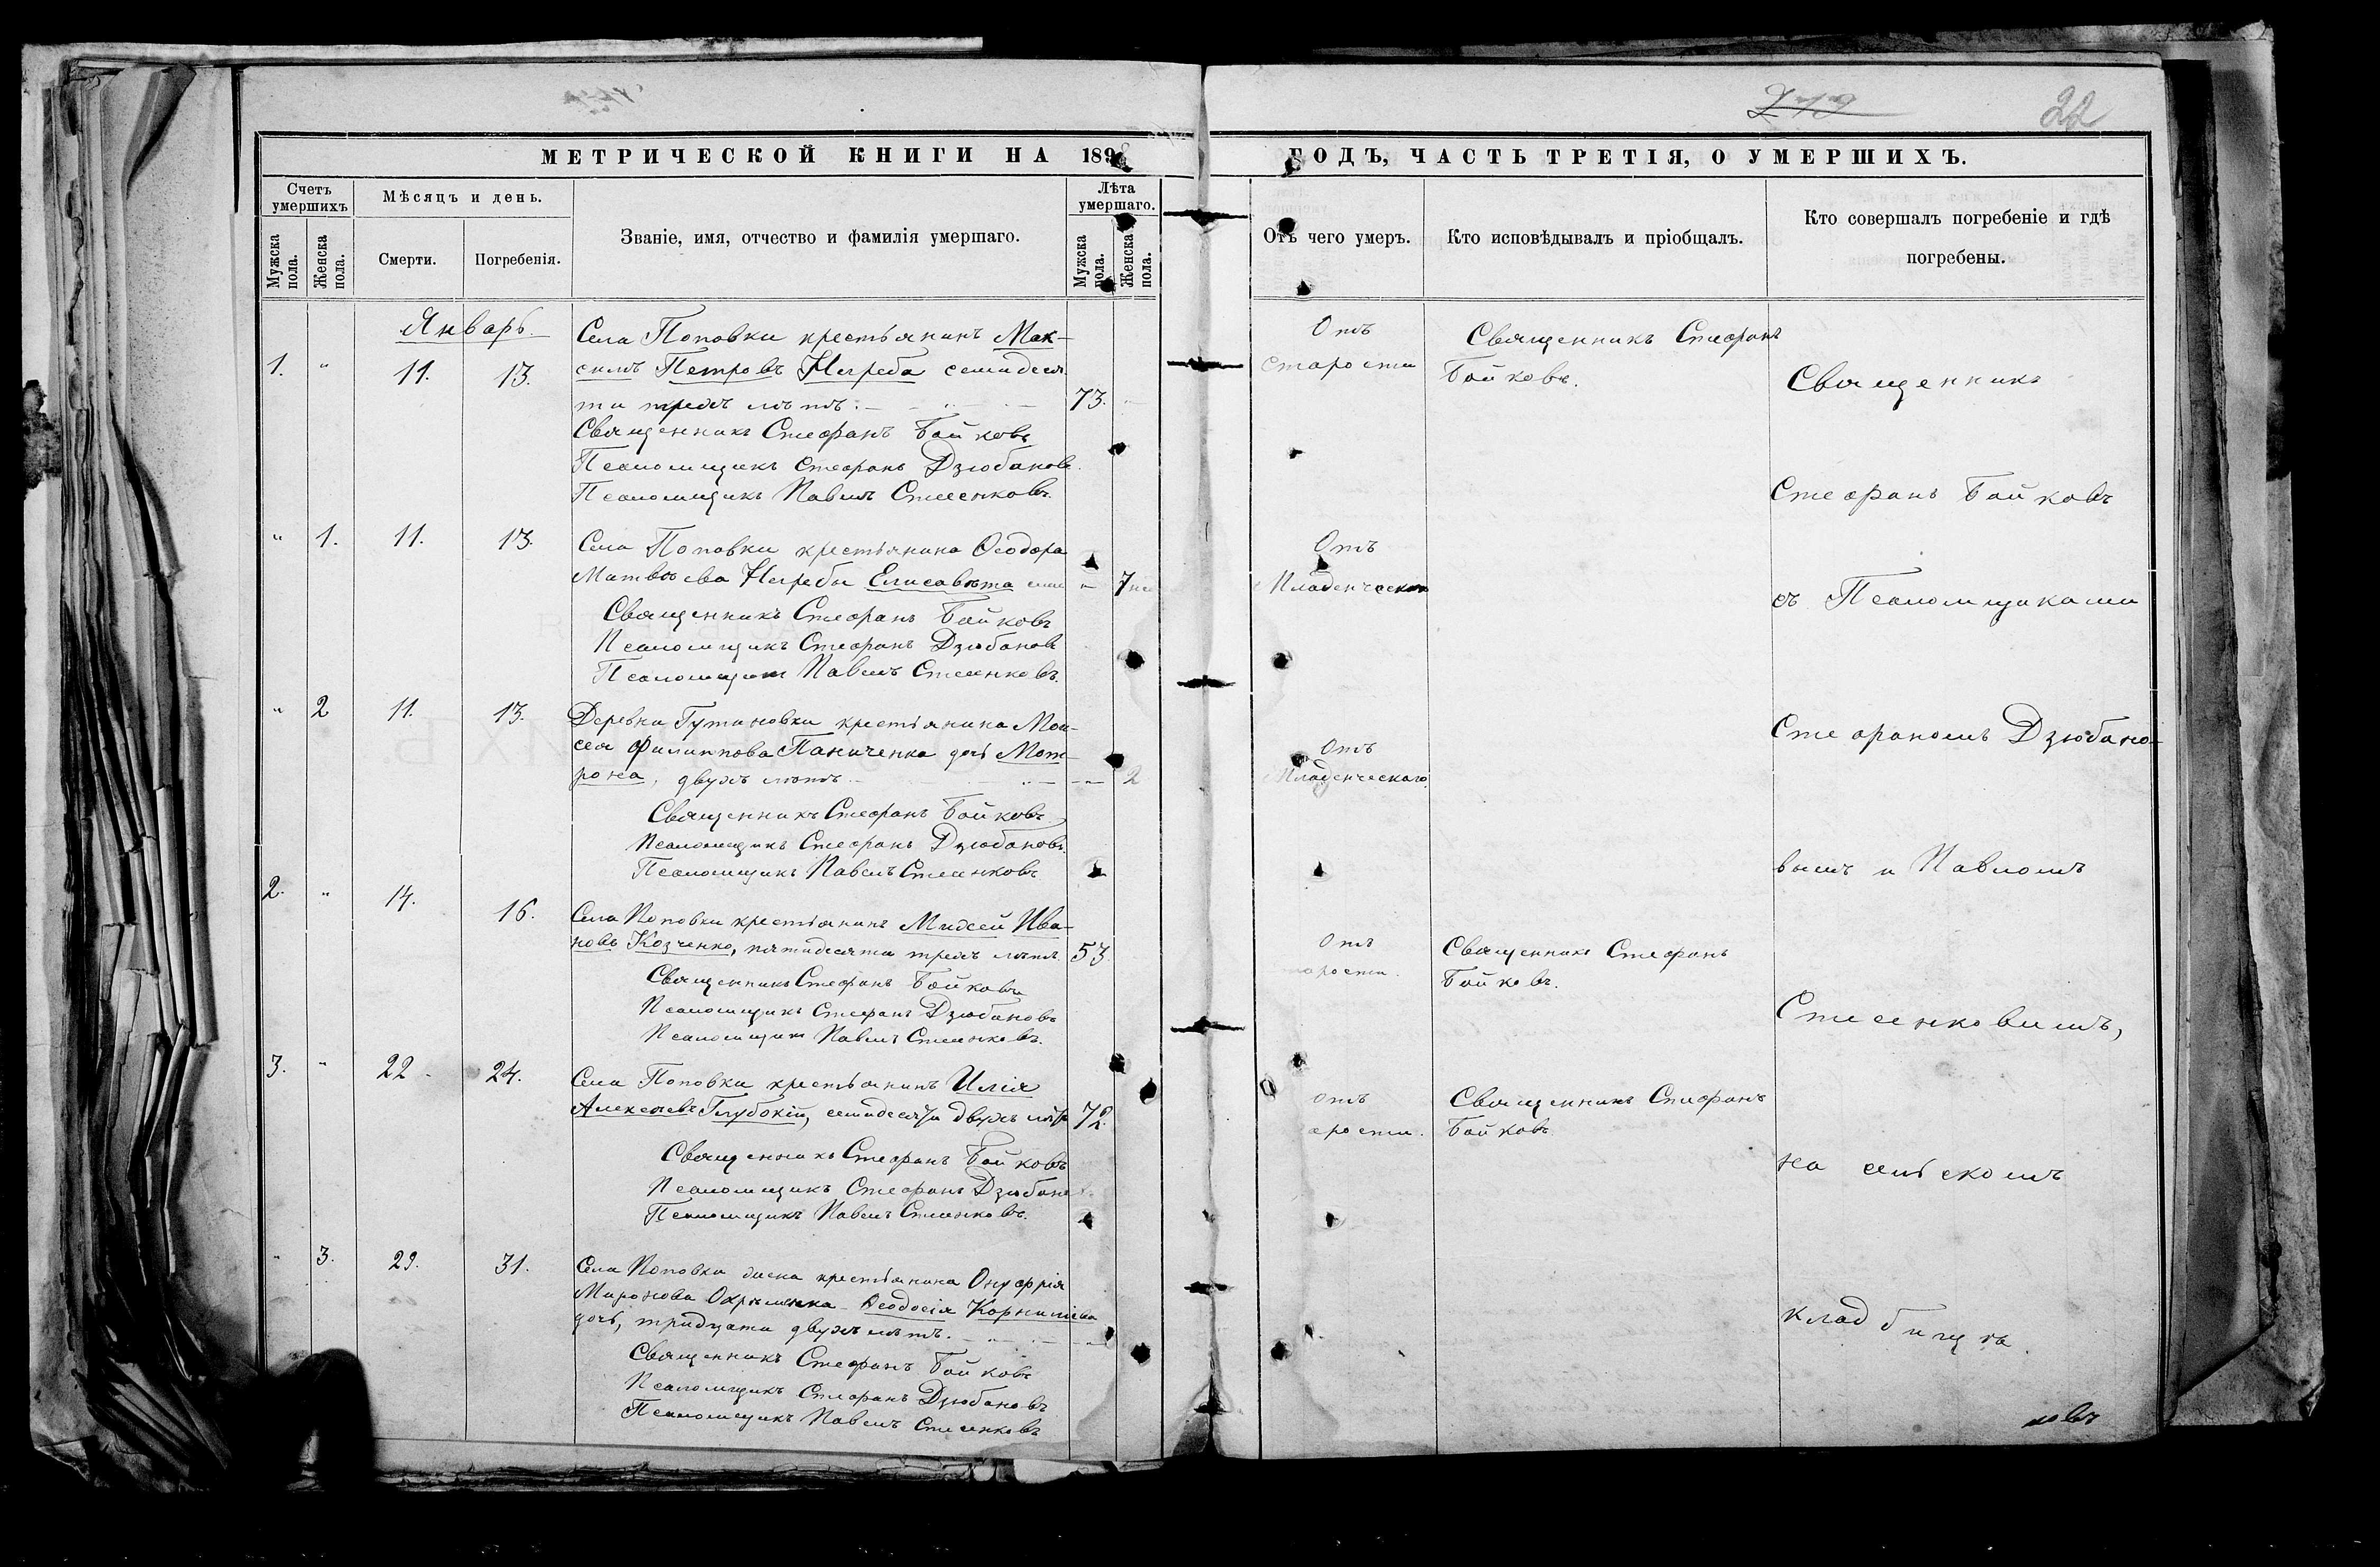 22
МЕТРИЧЕСКОЙ КНИГИ НА 189
ГОДЪ, ЧАСТЬ ТРЕТІЯ, О УМЕРШИХЪ.
Счетъ умершихъ
Мѣсяцъ и день.
Званіе, имя, отчество и фамилія умершаго.
Лѣта умершаго.
Мужска пола.
Женска пола.
Смерти.
Погребенія.
Мужска пола.
Женска пола.
Отъ чего умеръ.
Кто исповѣдывалъ и пріобщалъ.
Кто совершалъ погребеніе и гдѣ
погребены.
Январь.
1. " 11. 13.
Села Поповки крестьянинъ Мак-
симъ Петровъ Негреба семидеся
ти трехъ лѣтъ. 73.
Священникъ Стефанъ Бойковъ
Псаломщикъ Стефанъ Дзюбановъ.
Псаломщикъ Павелъ Стесенковъ.
Отъ
старости
Священникъ Стефанъ
Бойковъ.
" 1. 11. 13.
Села Поповки крестьянина Ѳеодора
Матвѣева Негребы Елисавета " 7
Священникъ Стефанъ Бойковъ
Псаломщикъ Стефанъ Дзюбановъ
Псаломщикъ Павелъ Стесенковъ.
Отъ
Младенческ
" 2 11. 13.
Деревни Гутиновки крестьянина Мои-
сея Филиппова Паниченка дочь Мот-
рона, двухъ лѣтъ. " 2
Священникъ Стефанъ Бойковъ
Псаломщикъ Стефанъ Дзюбановъ.
Псаломщикъ Павелъ Стесенковъ
Отъ
Младенческаго.
2. " 14. 16.
Села Поповки крестьянинъ Моѵсей Ива-
новъ Козченко, пятидесяти трехъ лѣтъ. 53.
Священникъ Стефанъ Бойковъ
Псаломщикъ Стефанъ Дзюбановъ
Псаломщикъ Павелъ Стесенковъ.
Отъ
арости.
Священникъ Стефанъ
Бойковъ.
3. " 22. 24.
Села Поповки крестьянинъ Илія
Алексѣевъ Глубокій, семидесяти двухъ лѣтъ 72.
Священникъ Стефанъ Бойковъ
Псаломщикъ Стефанъ Дзюбано
Псаломщикъ Павелъ Стесенковъ.
отъ
арости.
Священникъ Стефанъ
Бойковъ
" 3. 29. 31.
Села Поповки жена крестьянина Онуфрія
Миронова Охрименка Ѳеодосія Корниліева
дочь, тридцати двухъ лѣтъ.
Священникъ Стефанъ Бойковъ
Псаломщикъ Стефанъ Дзюбановъ
Псаломщикъ Павелъ Стесенковъ
Священникъ
Стефанъ Бойковъ
съ Псаломщиками
Стефаномъ Дзюбано-
вымъ и Павломъ
Стесенковымъ,
на сельскомъ
кладбищѣ.
новъ